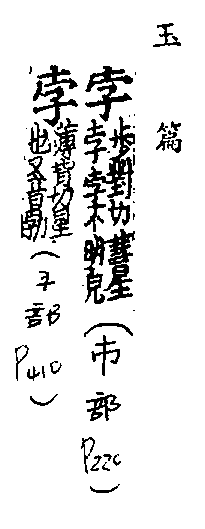 玉篇
孛步對切彗星孛孛不明皃(巿部P220)
孛薄背切星也又音勃(子部P410)